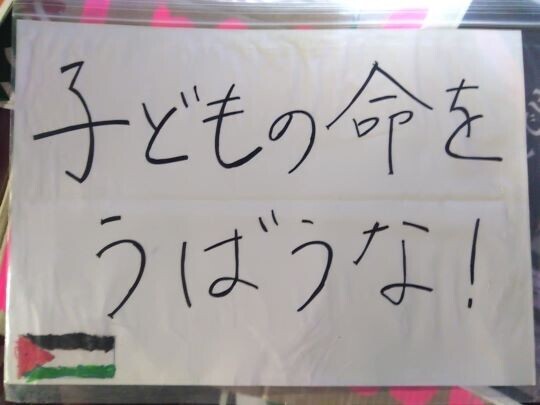 子どもの命を
うばうな!